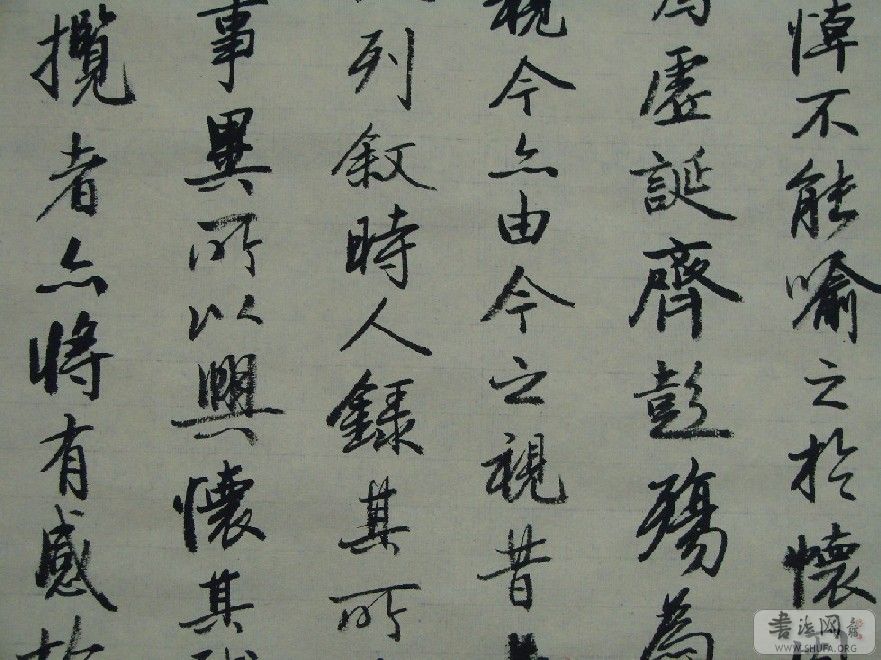 悼不能喻之於懷
為虛誕齊彭殤為
視今亦由今之視昔
列敘時人錄其所
事異所以興懷其
攬者亦將有感於
書法网
WWW.SHUFA.ORG